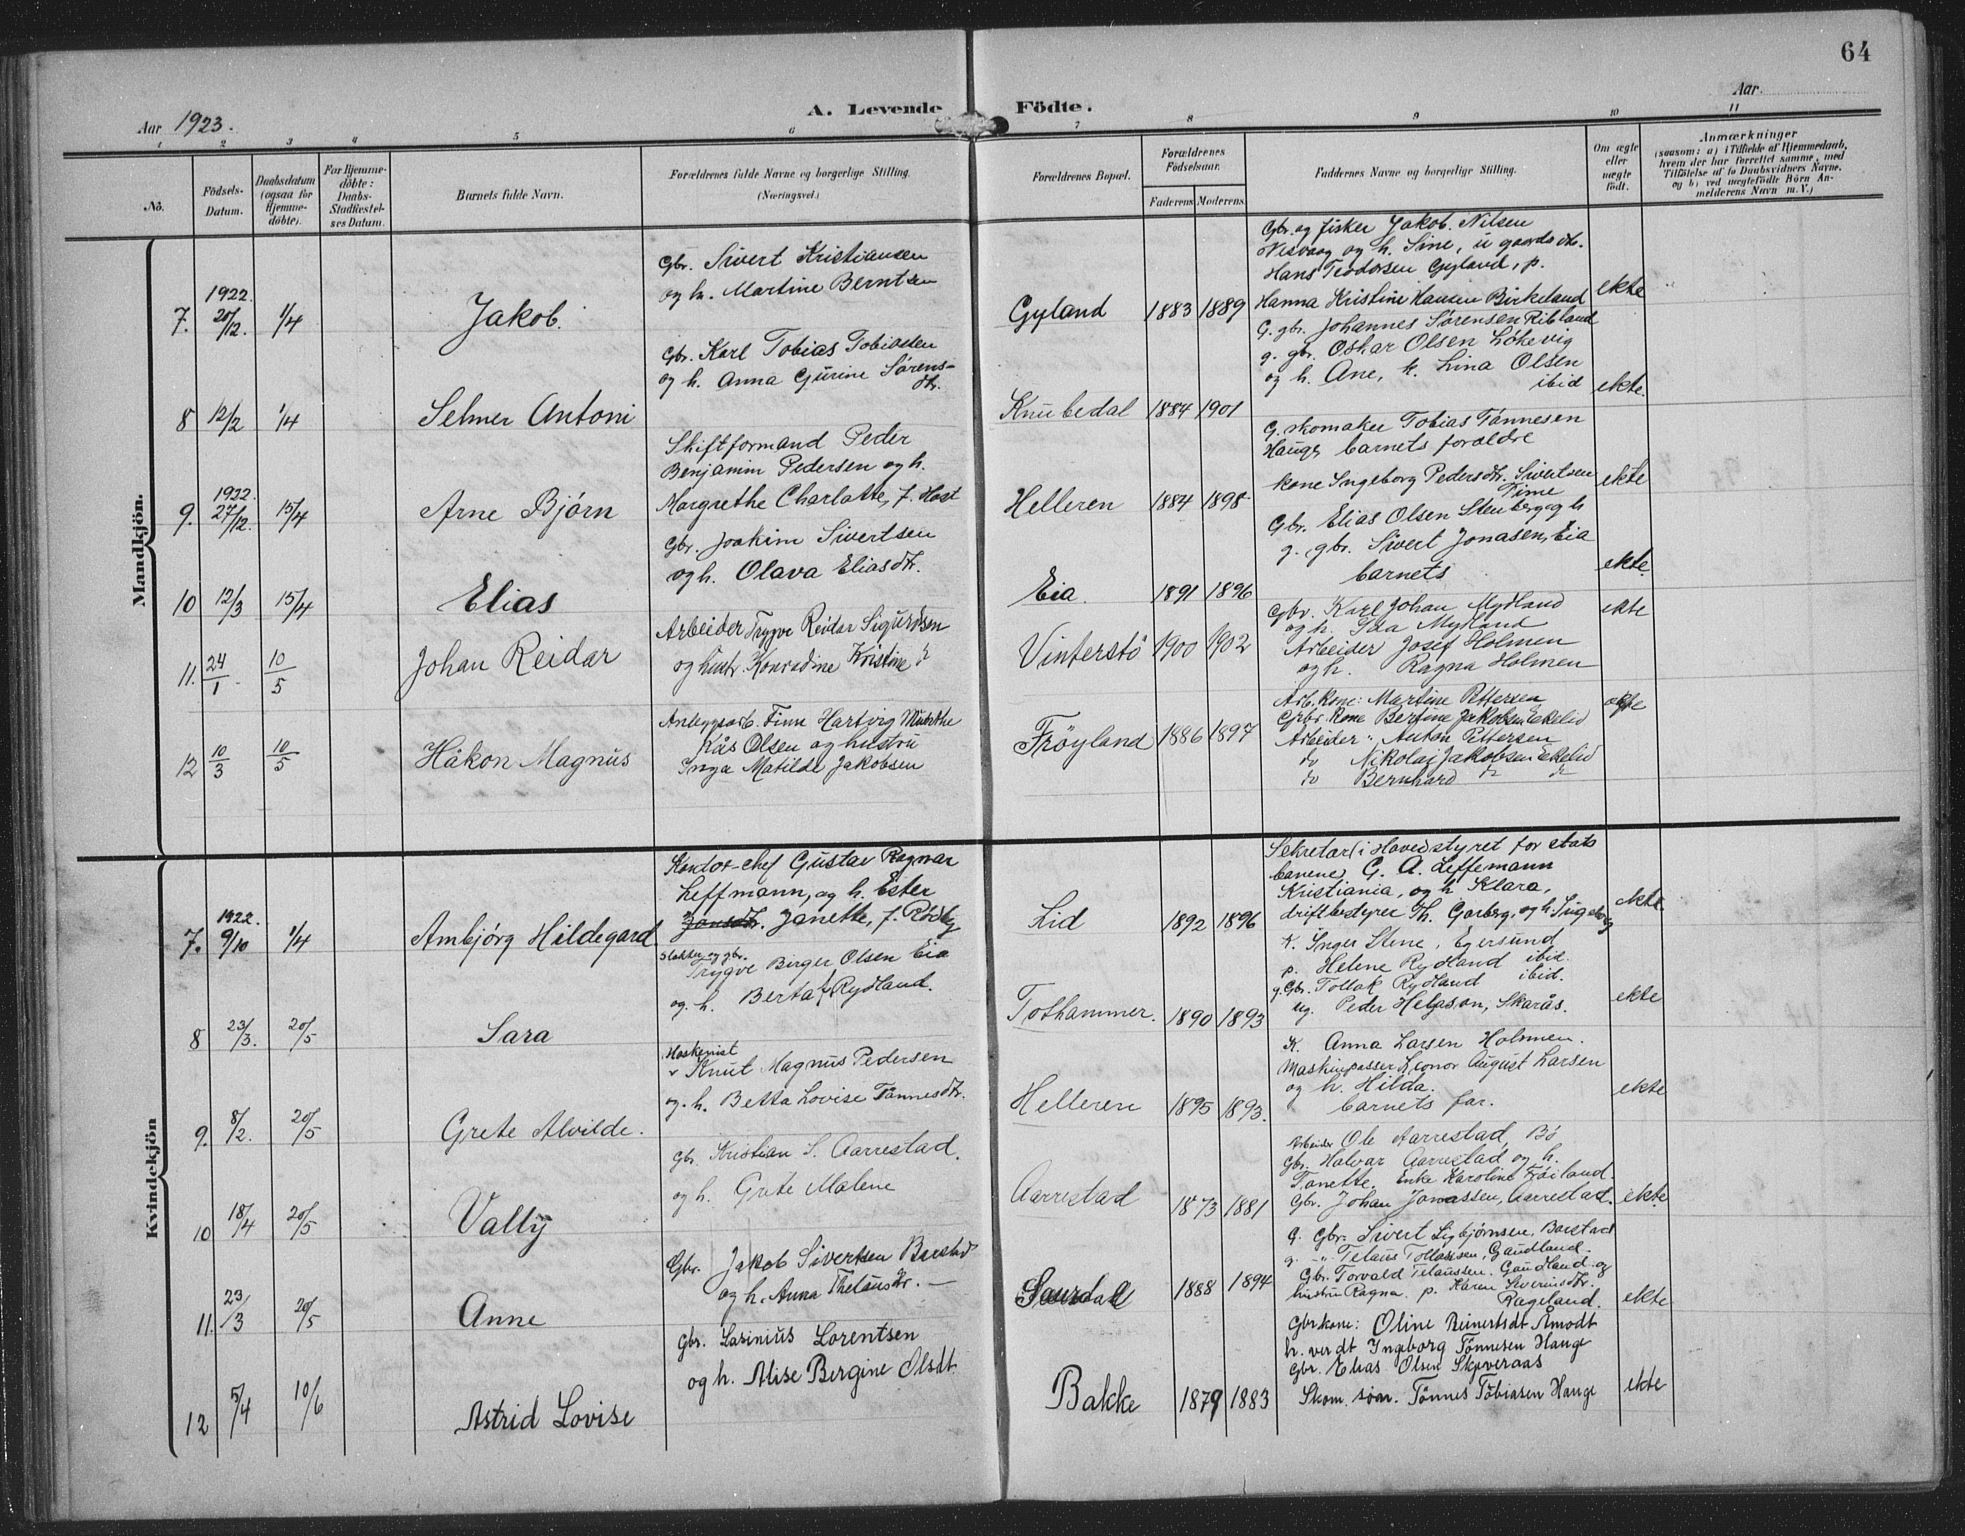 64
A. Levende Födte.
Aar 1923.
Aar
1 2 3 4 5 6 7 8 9 10 11
No.
Födsels-Datum.
Daabsdatum (ogsaa for Hjemme-döbte).
For Hjemme-döbte: Daabs-Stadfæstel-ses Datum.
Barnets fulde Navn.
Forældrenes fulde Navne og borgerlige Stilling. (Næringsvei.)
Forældrenes Bopæl.
Forældrenes Födselsaar.
Faderens Moderens
Faddernes Navne og borgerlige Stilling.
Om ægte eller uægte födt.
Anmærkninger
(saasom: a) i Tilfælde af Hjemmedaab,
hvem der har forrettet samme, med
Tilföielse af to Daabsvidners Navne,
og b) ved uægtefödte Börn An-
melderens Navn m. V.)
Mandkjön.
7. 1922. 20/12. 1/4 Jakob.
Gbr. Sivert Kristiansen
og h. Martine Berntsen
Gyland 1883 1889
Gbr. og fisker Jakob Nilsen
Nesvaag og h. Sine, u gaards dt.
Hans Teodorsen Gyland, p.
Hanna Kristine Hansen Birkeland
ekte
8 12/2 1/4 Selmer Antoni
Gbr. Karl Tobias Tobiasen
og h. Anna Gurine Sørens-
dt.
Knubedal 1884 1901
G. gbr. Johannes Sørensen Ribland
g. gbr. Oskar Olsen Løkevig
og h. Ane, k. Lina Olsen
ibid
ekte.
9. 1922. 27/12. 15/4 Arne Bjørn
Skiftformand Peder
Benjamin Pedersen og h.
Margrethe Charlotte, f. Høst
Helleren 1884 1898
G. skomaker Tobias Tønnesen
Hauge, barnets forældre
kone Ingeborg Pedersdt. Sivertsen
Time
ekte
10 12/3 15/4 Elias
Gbr. Joakim Sivertsen
og h. Olava Eliasdt.
Eia. 1891 1896
Gbr. Elias Olsen Stenberg og h
g. gbr. Sivert Jonasen, Eia
barnets
ekte.
11. 24/1 10/5 Johan Reidar
Arbeider Trygve Reidar Sigurdsen
og hustr. Konradine Kristine
Vinterstö 1900 1902
Gbr. Karl Johan Mydland
og h. Ida Mydland
Arbeider Josef Holmen
og h. Ragna Holmen
ekte
12 10/3 10/5 Håkon Magnus
Anleggsarb. Finn Hartvig
Kås Olsen og hustru
Inga Matilde Jakobsen
Fröyland 1886 1897
Arb. kone: Martine Pettersen
Gbr. Kone Bertine Jakobsen Eikelid
Arbeider Anton Pettersen
do Nikolai Jakobsen Eikelid
do Bernhard
ekte
Kvindekjön
7. 1922. 9/10 1/4 Ambjørg Hildegard
Kontor-chef Gustav Ragnar
Leffmann, og h. Ester
Janette, f. Rödby
Lid 1892 1896
Sekretær (i Hovedstyret for stats
banene) G. A. Leffemann
Kristiania, og h Klara,
driftbestyrer Th. Garberg, og h. Ingeborg
ekte.
8 23/3. 20/5 Sara
Slakter og gbr.
Trygve Birger Olsen Eia
og h. Berta f. Rydland.
Tothammer. 1890 1893
K. Inger Stene, Egersund
p. Helene Rydland ibid.
g. Gbr. Tollak Rydland ibid.
ug. Peder Helgason, Skarås.
ekte
9. 8/2. 20/5 Grete Alvilde.
Maskinist
Knut Magnus Pedersen
og h. Betta Lovise Tønnesdt.
Helleren 1895 1893.
K. Anna Larsen Holmen.
Maskinpasser Leonor August Larsen
og h. Hilda.
barnets far.
ekte
10 18/4 20/5 Vally
Gbr. Kristian S. Aarrestad.
og h. Grete Malene
Aarrestad 1873 1881
Arbeider Ole Aarrestad, Bö
Gbr. Halvar Aarrestad og h.
Tanette. Enke Karoline Frøiland.
Gbr. Johan Jonassen, Aarrestad.
ekte
11. 23/3 20/5 Anne
Gbr. Jakob Sivertsen Barstad
og h. Anna Thelausdt.
Saurdal 1888 1894
G. Gbr. Sivert Sigbjørnsen, Barstad
g. " Telaus Tollaksen, Gaudland.
Gbr. Torvald Telaussen. Gaudland og
hustru Ragna. p. Karen Severinsdt.
Rægeland.
ekte
12 5/4 10/6 Astrid Lovise
Gbr. Lasinius Lorentsen
og h. Alise Bergine Olsdt.
Bakke 1879 1883
Gbr kone: Oline Reinertsdt Åmodt
h. verdt Ingeborg Tönnesen Hauge
Gbr. Elias Olsen Skjveraas
Skom. søn. Tønnes Tobiasen Hauge
ekte